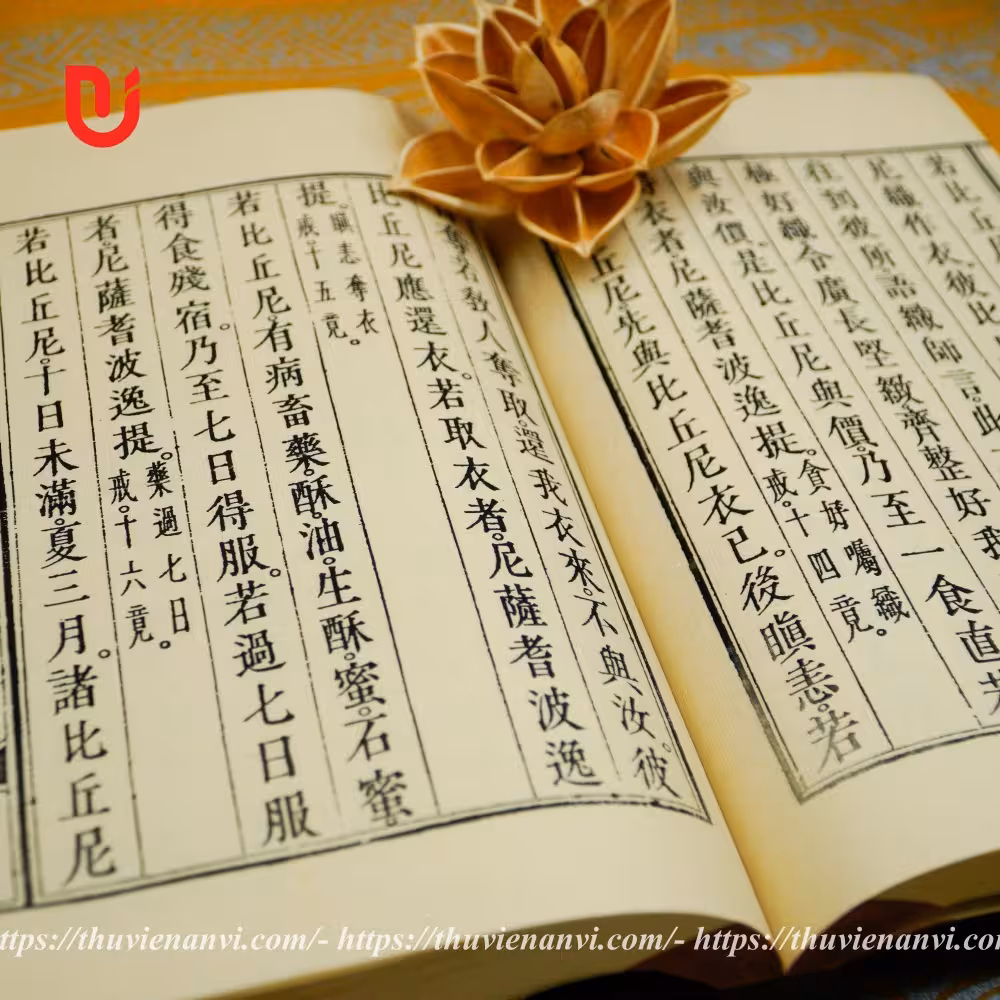 若比丘
尼織作衣。彼比
往到彼所語織師言。此
極好織令廣長堅緻齊整好我
與汝價。是比丘尼與價。乃至一食直若
衣者尼薩耆波逸提。
貪好囑織
戒。十四竟。
丘尼先與比丘尼衣已。後瞋恚。若
奪若教人奪取。還我衣來。不與汝。彼
比丘尼應還衣。若取衣者。尼薩耆波逸
提。
瞋恚奪衣
戒十五竟。
若比丘尼有病畜藥。酥。油。生酥。蜜。石蜜
得食殘宿。乃至七日得服。若過七日服
者。尼薩耆波逸提。
藥過七日
戒。十六竟。
若比丘尼。十日未滿。夏三月。諸比丘尼
https://thuvienanvi.com/- https://thuvienanvi.com/- https://thuvienanvi.com